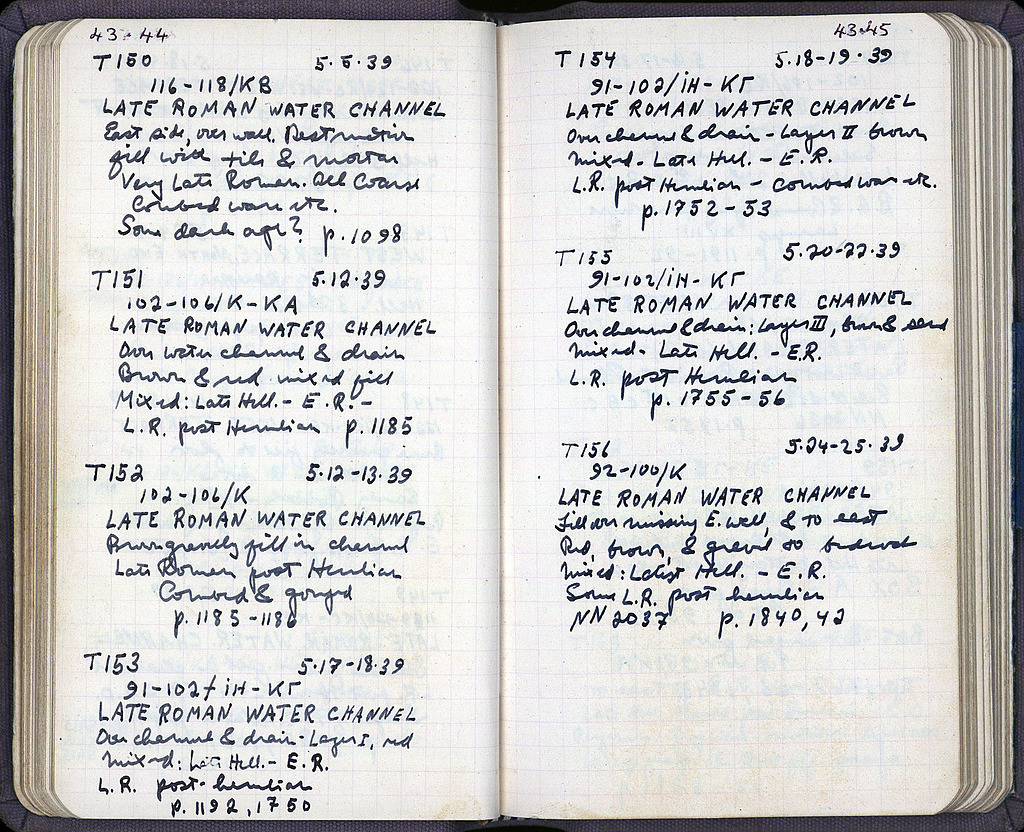 43-44
T150 5.5.39
116-118/KB
LATE ROMAN WATER CHANNEL
East side, over wall. Destruction
fill with tile & mortar
Very Late Roman. All Coarse
Combed ware etc.
Some dark age? p.1098
T151 5.12.39
102-106/K-KA
LATE ROMAN WATER CHANNEL
Over water channel & drain
Brown & red mixed fill
Mixed: Late Hell. - E.R. -
L.R. post Herulian p.1185
T152 5.12-13.39
102-106/K
LATE ROMAN WATER CHANNEL
Brown gravelly fill in channel
Late Roman post Herulian
Combed & gouged
p.1185-1186
T153 5.17-18.39
91-102/ΙΗ-ΚΓ
LATE ROMAN WATER CHANNEL
Over channel & drain - Layer I, red
Mixed: Late Hell. - E.R.
L.R. post-herulian
p.1192, 1750
43-45
T154 5.18-19.39
91-102/ΙΗ-ΚΓ
LATE ROMAN WATER CHANNEL
Over channel & drain - Layer II brown
Mixed - Late Hell. - E.R.
L.R. post Herulian - Combed ware etc.
p.1752-53
T155 5.20-22.39
91-102/ΙΗ-ΚΓ
LATE ROMAN WATER CHANNEL
Over channel & drain: Layer III, brown & sand
Mixed - Late Hell. - E.R.
L.R. post Herulian
p.1755-56
T156 5.24-25.39
92-100/K
LATE ROMAN WATER CHANNEL
Fill over missing E. wall, & to east
Red, brown, & gravel to bedrock
Mixed: Latest Hell. - E.R.
Some L.R. post herulian
NN 2037 p.1840, 42